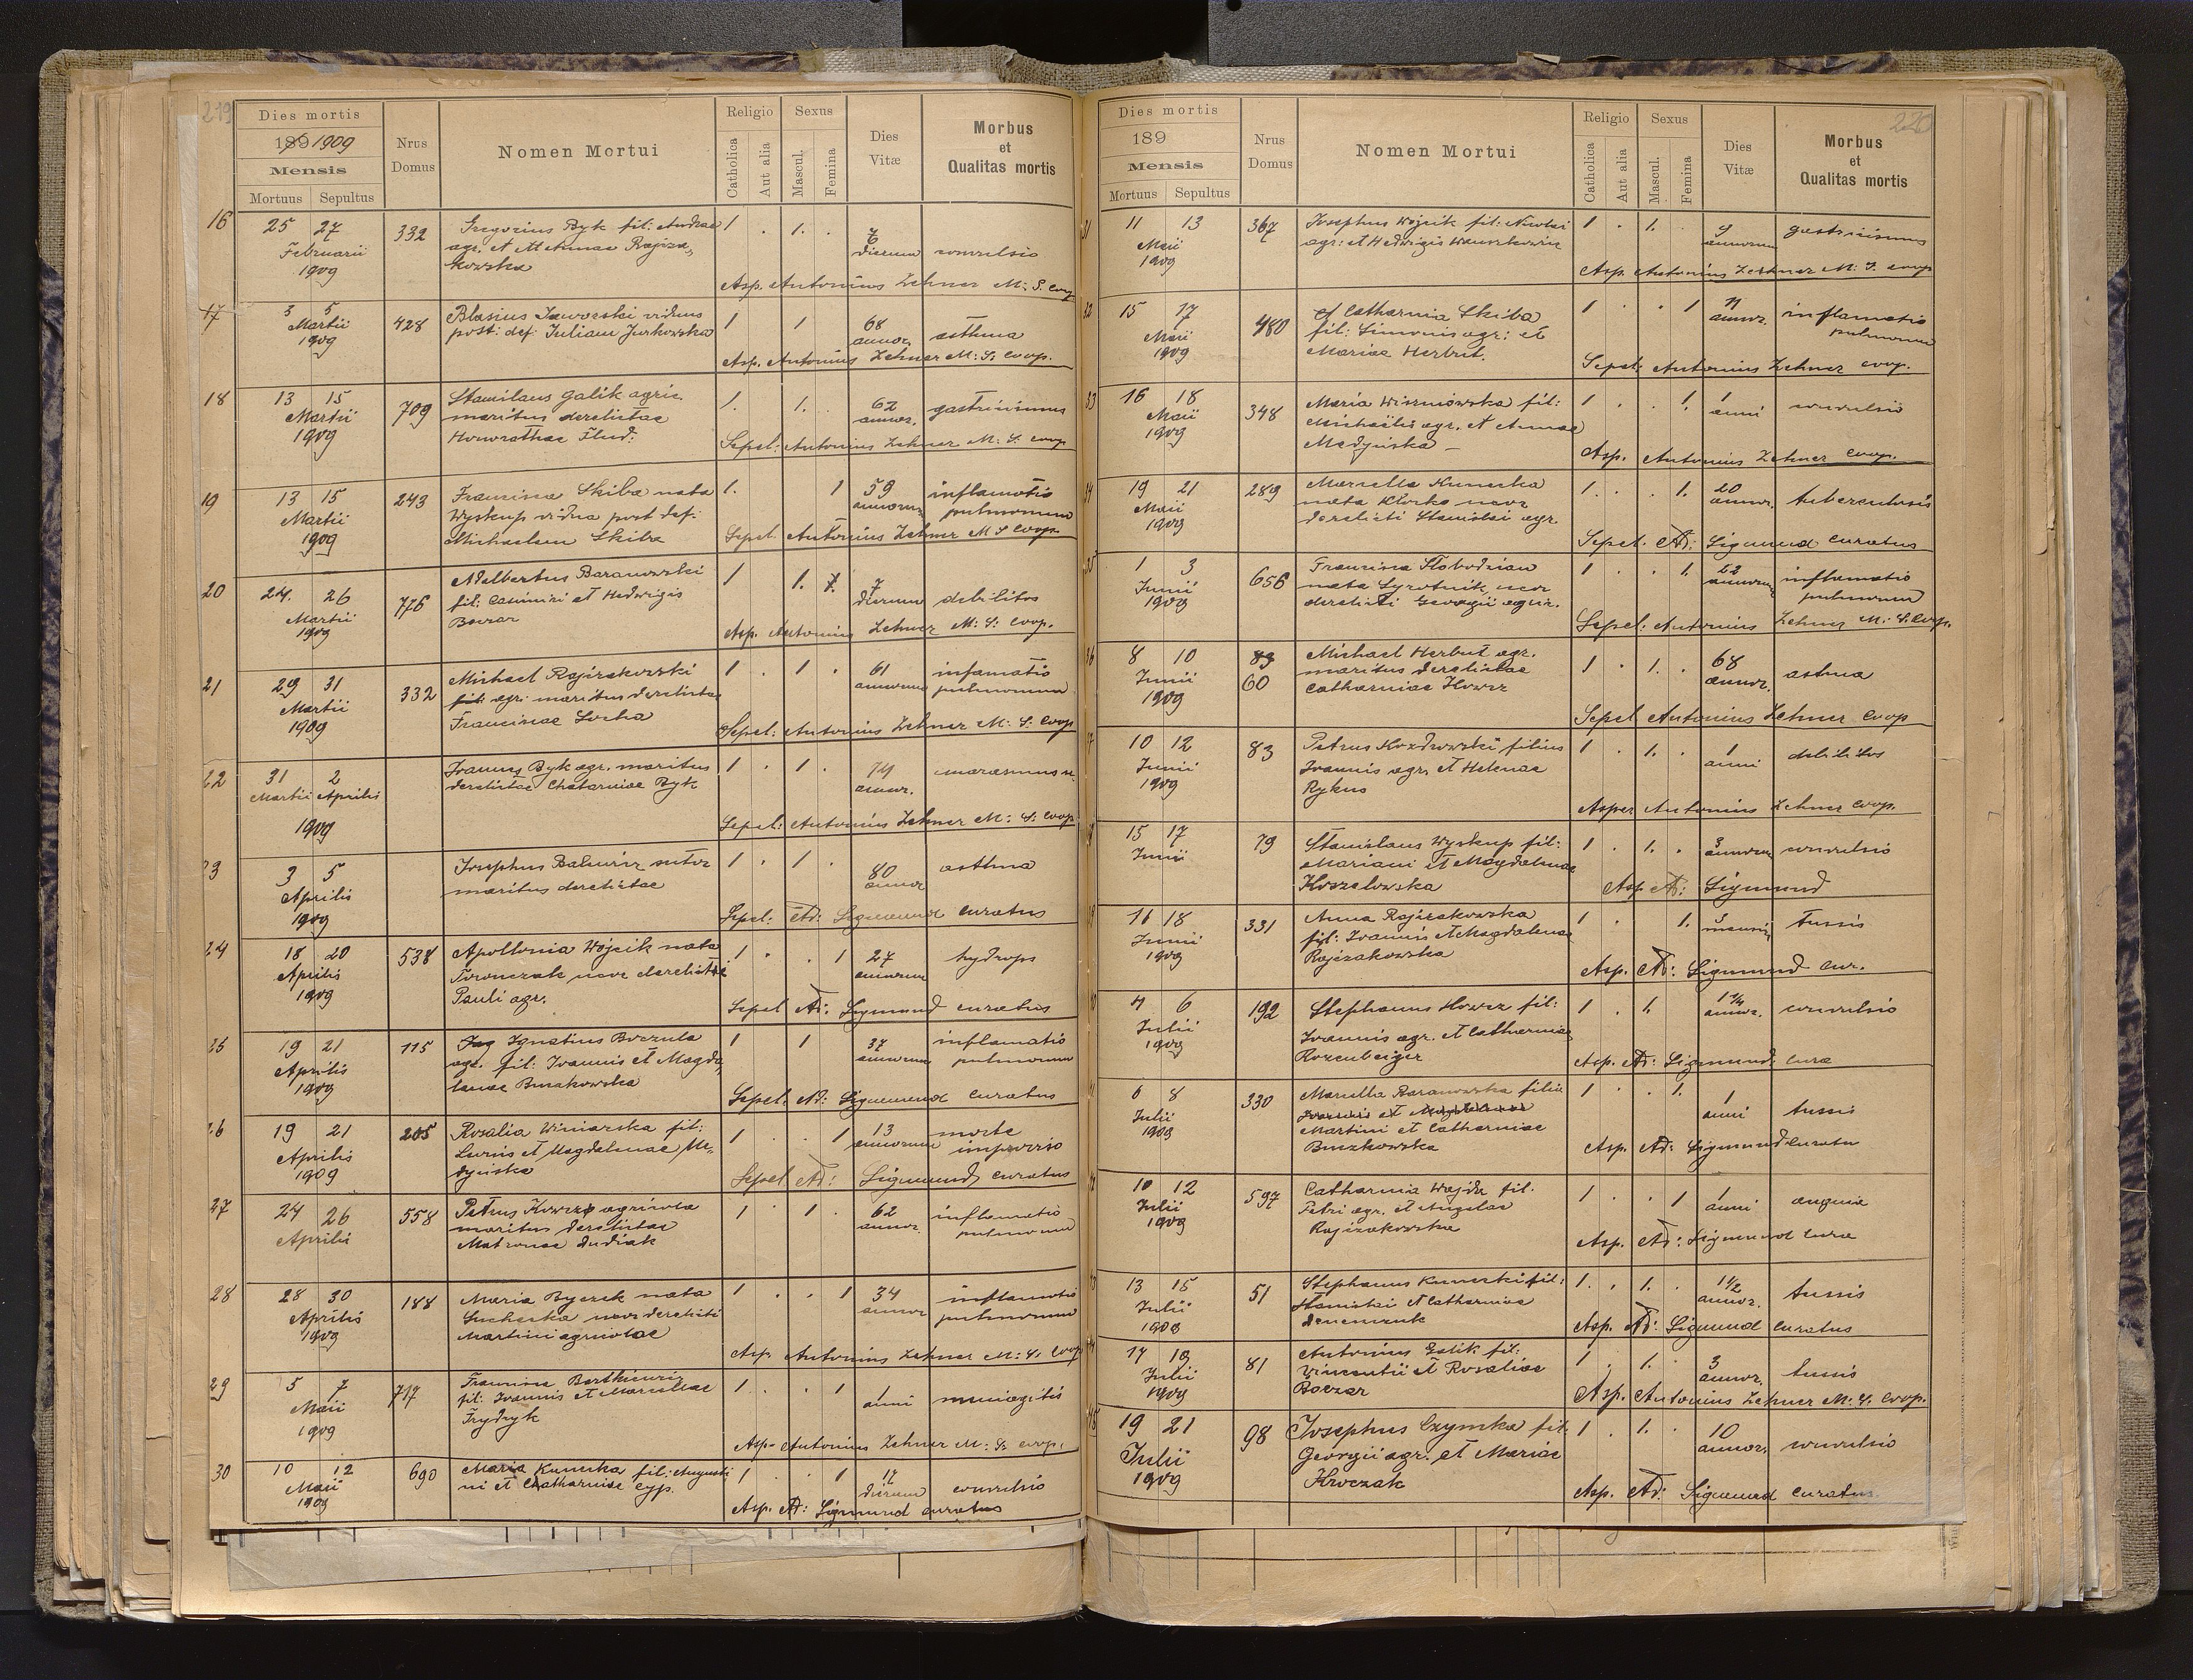 219
Dies mortis
189 1909
Mensis
Mortuus Sepultus
Nrus
Domus
Nomen Mortui
Religio
Catholica
Aut alia
Sexus
Mascul.
Femina
Dies
Vitæ
Morbus
et
Qualitas mortis
16
25 27
Februarii
1909
332
Gregorius Byk fil: Andreae
agr. et
kowska
1 . 1. .
dierum convulsio
Asp. Antonius Zehner M: S. coop
17
3 5
Martii
1909
428
Blasius Jaworski viduus
post: def: Juliam Jurkowska
1 1
68
annor. asthma
Asp. Antonius Zehner M: S. Coop.
18
13 15
Martii
1909
709
Stanislaus Galik agric.
maritus derelictae
Honorathae
1. 1.
62
annor. gastricismus
Sepel: Antonius Zehner M: S. coop
19
13 15
Martii
1909
243
Francisca Skiba nata
Wyskup vidua post def:
Michaelem Skiba
1. 1
59
annorum
inflamatio
pulmonum
Sepel. Antonius Zehner M S Coop.
20
24. 26
Martii
1909
776
Adelbertus Baranowski
fil: Casimiri et Hedwigis
Boczar
1 1.
7
dierum debilitas
Asp. Antonius Zehner M: S: Coop.
21
29 31
Martii
1909
332
Michael Rajzakowski
fil: agr: maritus derelictae
Franciscae Socha
1 . 1 .
61
annorum
infamatio
pulmonum
Sepel: Antonius Zehner M: S. Coop
22
31 2
Martii Aprilis
1909
Joannes Byk agr. maritus
derelictae Chatarniae Byk
1 . 1 .
74
annor.
marasmus
Sepel: Antonius Zehner M: S: Coop
23
3 5
Aprilis
1909
Josephus sutor
maritus derelictae
1 . 1 .
80
annor
asthma
Sepel: Ad: Sigmund Curatus
24
18 20
Aprilis
1909
538
Apollonia Wójcik nata
uxor derelicta
Pauli agr.
1 . . 1
27
annorum
hydrops
Sepel Ad: Sigmund curatus
25
19 21
Aprilis
1909
115
Ignatius Boczula
agr. fil: Joannis et Magda,
lenae Burakowska
1 1
37
annorum
inflamatio
pulmonum
Sepel. Ad: Sigmund Curatus
26
19 21
Aprilis
1909
205
Rosalia Winiarska fil:
et Magdalenae Me,
dyńska
1 . . 1
13
annorum
morte
improviso
Sepel Ad: Sigmund curatus
27
24 26
Aprilis
558
Petrus Howcz agricola
maritus derelictae
Matronae Dudiak
1 . 1 .
62
annor.
inflamatio
pulmonum
28
28 30
Aprilis
1909
188
Maria Byczek nata
Suchecka uxor derelicti
Martini agricolae
1 . . 1
34
annor
inflamatio
pulmonum
Asp. Antonius Zehner M: S. Coop
29
5 7
Maii
1909
717
Francisca
fil: Joannis et Marcellae
Frydryk
1 . . 1
1
anni
meningitis
Asp- Antonius Zehner M: S: coop.
30
10 12
Maii
1909
690
Maria Kunicka fil: Augusti
ni et Chatharniae Cyp.
1 . . 1
17
dierum
convulsio
Asp. Ad: Sigmund curatus
220
Dies mortis
189
Mensis
Mortuus Sepultus
Nrus
Domus
Nomen Mortui
Religio
Catholica
Aut alia
Sexus
Mascul.
Femina
Dies
Vitæ
Morbus
et
Qualitas mortis
31
11 13
Maii
1909
367
Josephus Wójcik fil: Nicolai
agr: et Hedwigis
1 . 1. .
9
annorum
gastricismus
Asp. Antonius Zehner M: S. coop
32
15 17
Maii
1909
480
Catharnia Skiba
fil: Simonis agr: et
Mariae Herbut.
1 . . 1
annor.
inflamatio
pulmonum
Sepel: Antonius Zehner coop.
33
16 18
Maii
1909
348
Maria Wiszniowska fil:
Michaëlis agr. et Annae
Medyńska –
1 . . 1.
1
anni
convulsio
Asp. Antonius Zehner Coop.
34
19 21
Maii
1909
289
Marcella Kunicka
nata uxor
derelicti Stanislai agr.
1. . . 1.
20
annor.
tuberculosis
Sepel. Ad: Sigmund Curatus
35
1 3
Junii
1909
656
Francisca Slobodzian
nata Syrotnik, uxor
derelicti Georgii agric.
1 . . 1.
22
annorum
inflamatio
pulmonum
Sepel: Antonius Zehner M: S. Coop.
36
8 10
Junii
1909
83
60
Michael Herbut agr.
maritus derelictae
Catharniae Howcz
1 . 1. .
68
annor.
astma
Sepel Antonius Zehner Coop
37
10 12
Junii
1909
83
Petrus Kozdrowski filius
Joannis agr. et Helenae
Rykus
1 . 1. .
1
anni
debilitas
Asper Antonius Zehner Coop.
15 17
Junii
79
Stanislaus Wyskup fil:
Mariani et Magdalenae
Koszelowska
1 . 1. .
3
annorum
convulsio
Asp Ad: Sigmund
16 18
Junii
1909
331
Anna Rajzakowska
fil: Joannis et Magdalenae
Rajzakowska
1 . 1.
3
mensis
tussis
Asp. Ad: Sigmund Cur.
4 6
Julii
1909
192
Stephanus Howcz fil:
Joannis agr. et Catharniae
Rozenbeiger
1 . 1.
1 1/4
annor.
convulsio
Asp. Ad: Sigmund Cura
6 8
Julii
1909
330
Marcella Baranowska filia
Joannis et Magdalenae
Martini et Catharniae
Buczkowska
1 . . 1.
1
anni
tussis
Asp. Ad: Sigmund Curatu
10 12
Julii
1909
597
Catharnia Wajda fil.
Petri agr. et Angelae
Rajzakowska
1 . . 1
1
anni
angina
Asp. Ad: Sigmund Cura
13 15
Julii
1909
51
Stephanus Kunicki fil:
Stanislai et Catharniae
1. . 1. .
1 1/2
annor.
tussis
Asp. Ad: Sigmund Curatus
17 19
Julii
1909
81
Antonius Galik fil:
Vincentii et Rosaliae
Boczar
1 . 1. .
3
annor.
tussis
Asp. Antonius Zehner M: S. Coop.
19 21
Julii
1909
98
Josephus Czymka fil:
Georgii agr. et Mariae
Kroczak
1 . 1. .
10
annor.
convulsio
Asp. Ad: Sigmund Curatus.